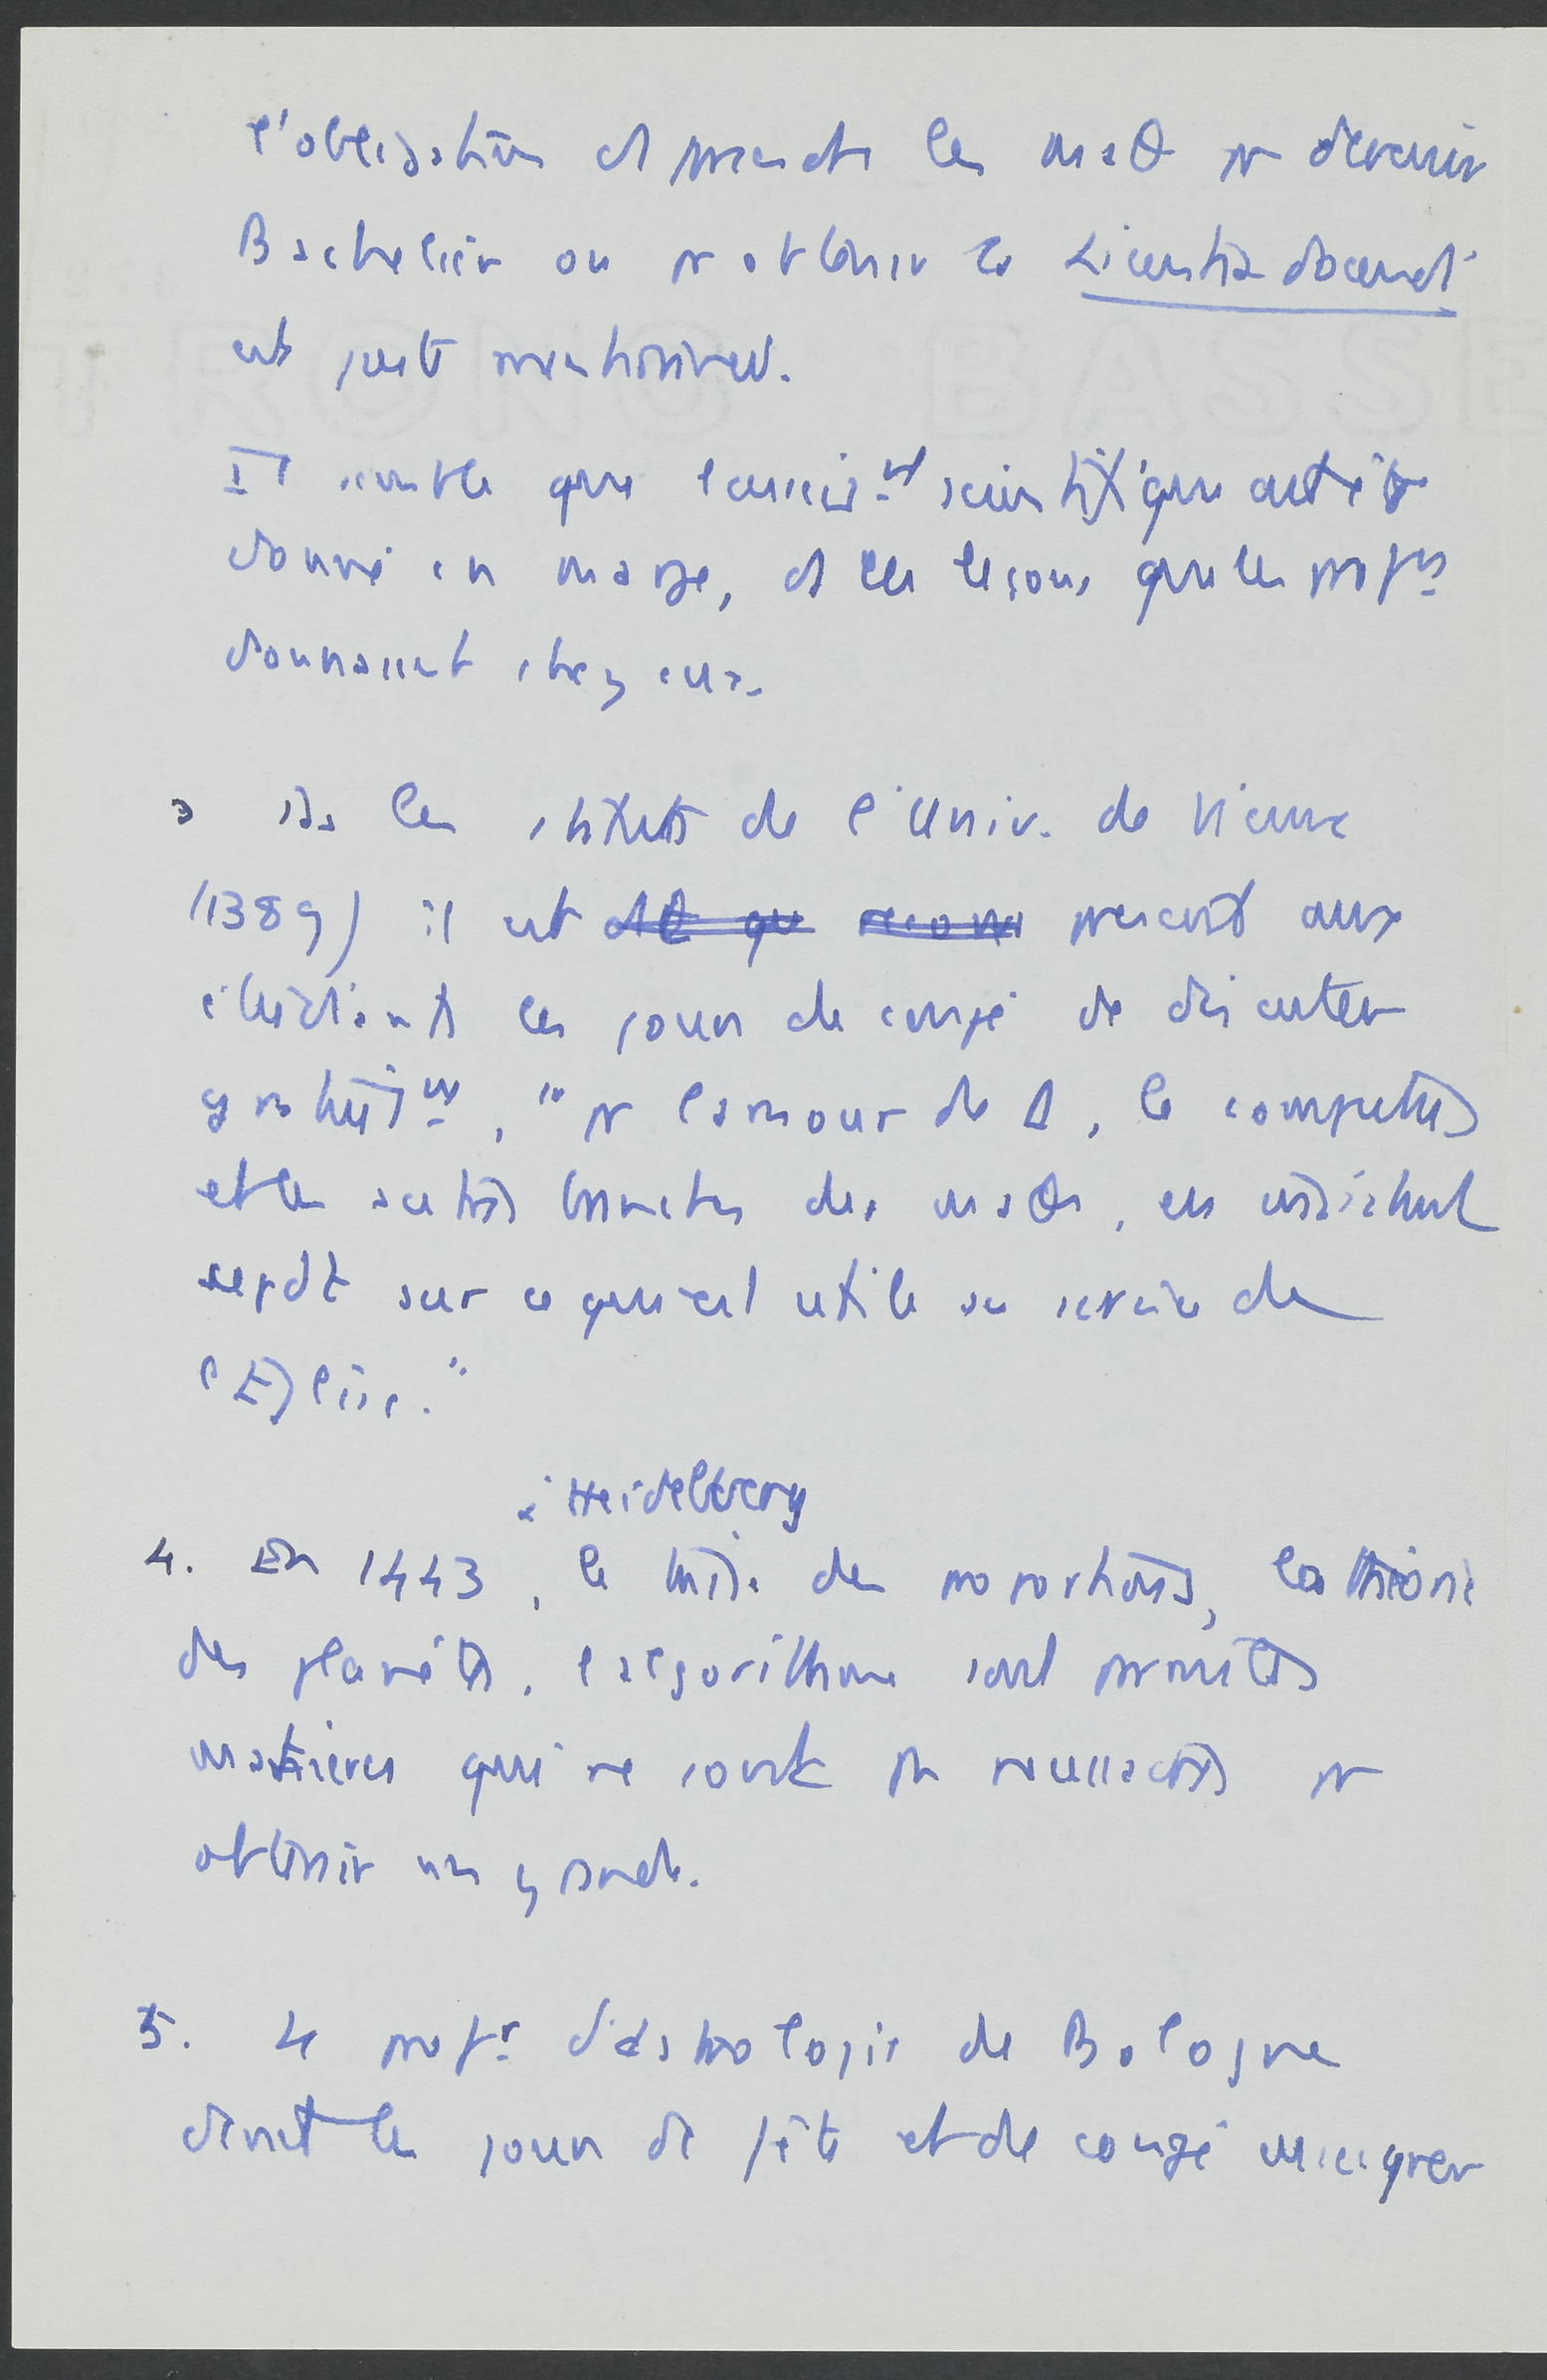 l'obligation d prendre les math pr devenir
Bachelier ou pr obtenir la Licentia docendi
est juste mentionnée.
Il semble que l'enseigt scientifique ait été
donné en marge, ds les leçons que les profrs
donnaient chez eux.
3 ds les statuts de l'Univ. de Vienne
(1389) il est dit que recom prescrit aux
étudiants les jours de congé de discuter
gratuitt, "pr l'amour de D, le computus
et les autres branches des math, en insistant
surtt sur ce qui est utile au service de
l'Eglise."
à Heidelberg
4. En 1443, le traité des proportions, la théorie
des planètes, l'algorithme sont
matières qui ne sont pas nécessaires pr
obtenir un grade.
5. Le profr d'astrologie de Bologne
devait les jours de fête et de congé enseigner